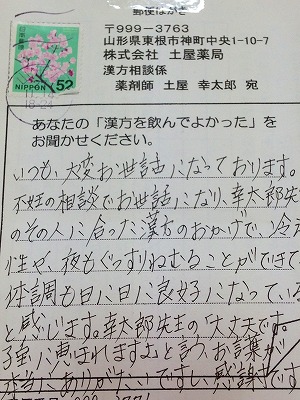 郵便はがき
NIPPON 52
18-24
〒999-3763
山形県東根市神町中央1-10-7
株式会社 土屋薬局
漢方相談係
薬剤師 土屋 幸太郎 宛
あなたの「漢方を飲んでよかった」を
お聞かせください。
いつも、大変お世話になっております。
不妊の相談でお世話になり、幸太郎先
のその人に合った漢方のおかげで、冷え
性や、夜もぐっすりねむることができて
体調も日に日に良好になっている
と感じます。幸太郎先生の「大丈夫です。
子宝に恵まれますよ」と言うお言葉が
本当にありがたいですし、感謝です